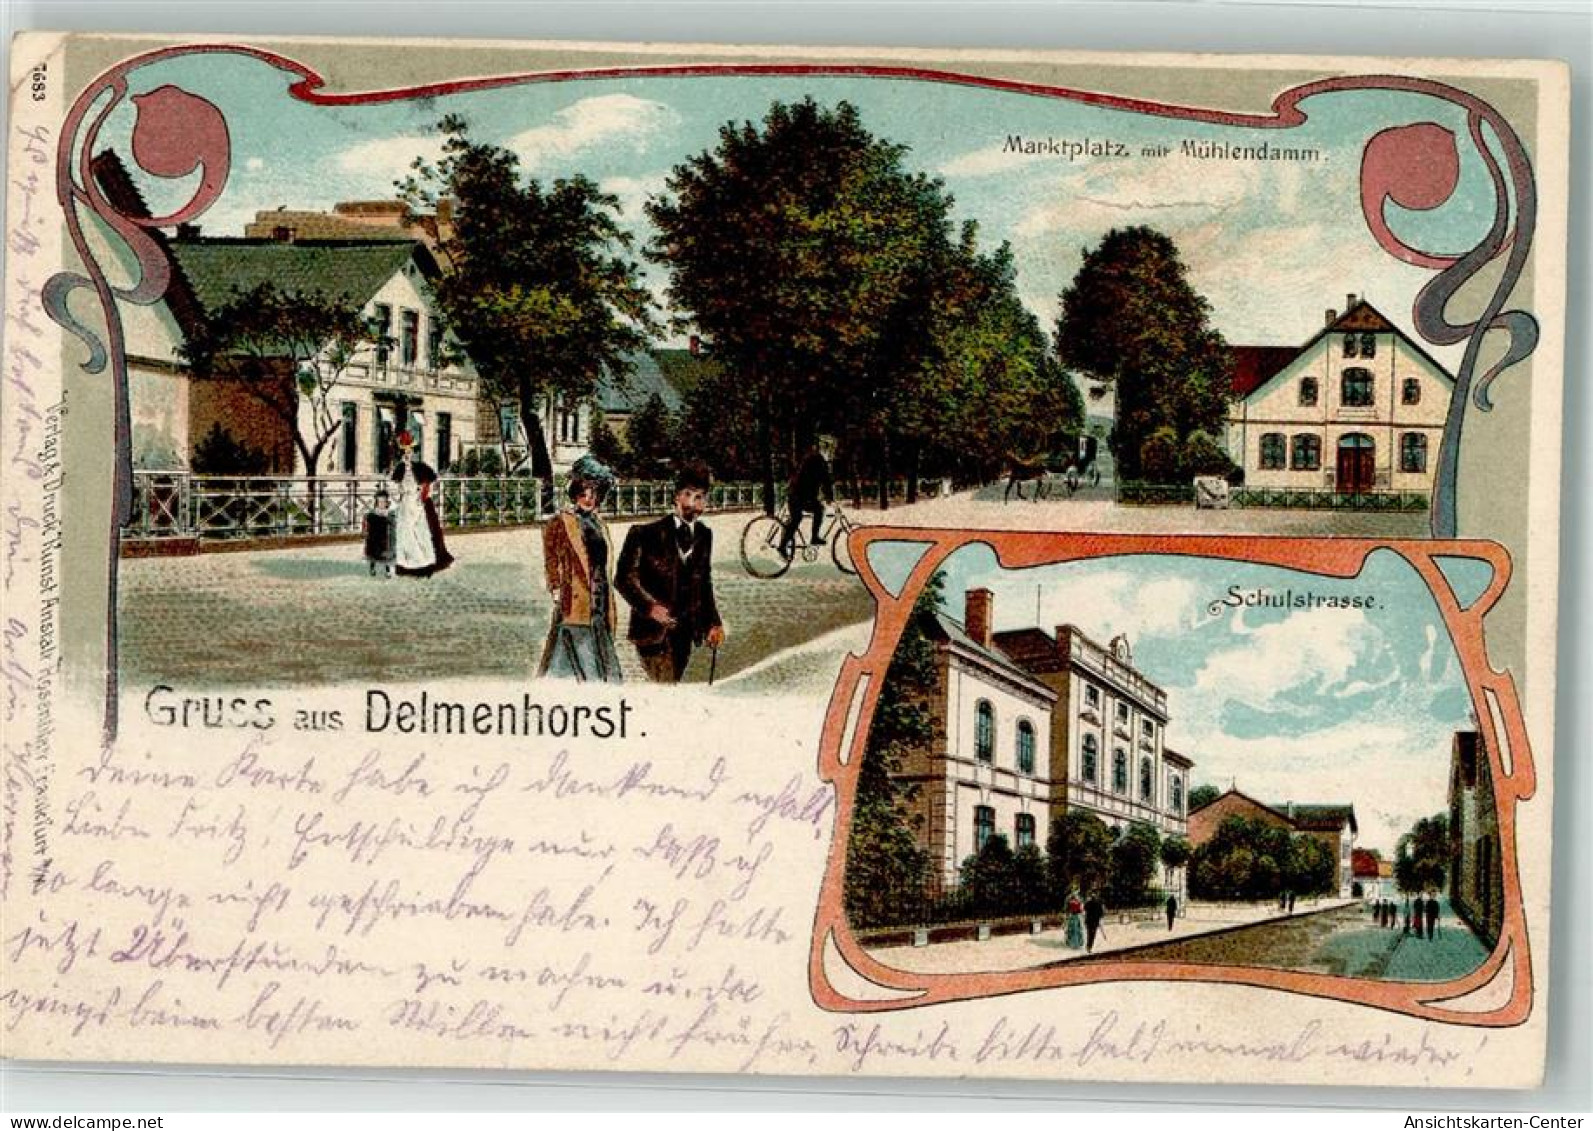 7683
Marktplatz mit Mühlendamm.
Schulstrasse.
Gruss aus Delmenhorst.
Deine Karte habe ich dankend erhalt.
Liebe Fritz! Entschuldige nur, daß ich
so lange nicht geschrieben habe. Ich hatte
jetzt Überstunden zu machen u. da
ging's beim besten Willen nicht früher, Schreibe bitte bald einmal wieder!
Verlag & Druck Kunst Anstalt Rosenblatt Frankfurt a/M.
Ansichtskarten-Center